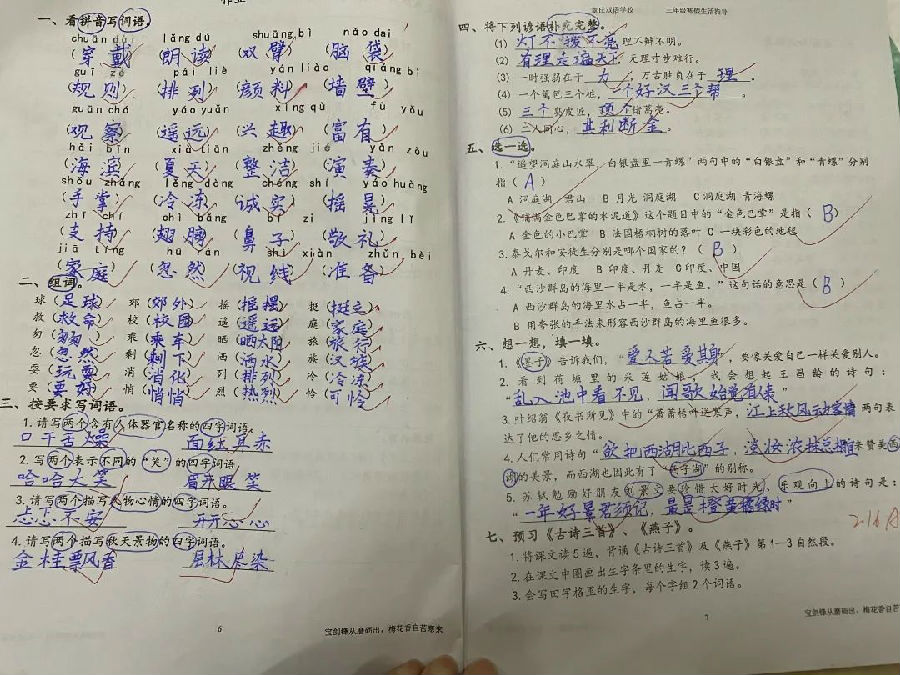 一、看拼音写词语。
chuān dài lǎng dú shuāng bì nǎo dai
(穿戴) (朗读) (双臂) (脑袋)
guī zé pái liè yán liào qiáng bì
(规则) (排列) (颜料) (墙壁)
guān chá yáo yuǎn xìng qù fù yǒu
(观察) (遥远) (兴趣) (富有)
hǎi bīn xià tiān zhěng jié yǎn zòu
(海滨) (夏天) (整洁) (演奏)
shǒu zhǎng lěng dòng chéng shí yáo huàng
(手掌) (冷冻) (诚实) (摇晃)
zhī chí chì bǎng bí zi jìng lǐ
(支持) (翅膀) (鼻子) (敬礼)
jiā tíng hū rán shì xiàn zhǔn bèi
(家庭) (忽然) (视线) (准备)
二、组词。
球(足球) 郊(郊外) 摇(摇摆) 挺(挺立)
救(救命) 校(校园) 遥(遥远) 庭(家庭)
匆(匆匆) 乘(乘车) 晒(晒太阳) 旅(旅行)
忽(忽然) 剩(剩下) 洒(洒水) 族(汉族)
耍(玩耍) 消(消化) 列(排列) 冷(冷冻)
要(要好) 悄(悄悄) 烈(热烈) 怜(可怜)
三、按要求写词语。
1. 请写两个含有人体器官名称的四字词语。
口干舌燥 面红耳赤
2. 写两个表示不同的“笑”的四字词语
哈哈大笑 眉开眼笑
3. 请写两个描写人物心情的四字词语。
忐忑不安 开开心心
4. 请写两个描写秋天景物的四字词语。
金桂飘香 层林尽染
6 宝剑锋从磨砺出，梅花香自苦寒来
三年级寒假生活指导
四、将下列谚语补充完整。
(1) 灯不拨不亮，理不辩不明。
(2) 有理走遍天下，无理寸步难行。
(3) 一时强弱在于力，万古胜负在于理。
(4) 一个篱笆三个桩，一个好汉三个帮。
(5) 三个
(6) 二人同心，其利断金。
五、选一选。
1. “遥望洞庭山水翠，白银盘里一青螺”两句中的“白银盘”和“青螺”分别
指(A)
A 洞庭湖 君山 B 月光 洞庭湖 C 洞庭湖 青海螺
2.《铺满金色巴掌的水泥道》这个题目中的“金色巴掌”是指(B)
A 金色的小巴掌 B 法国梧桐树的落叶 C 一块彩色的地毯
3. 泰戈尔和安徒生分别是哪个国家的？(B)
A 丹麦、印度 B 印度、丹麦 C 印度、中国
4. “西沙群岛的海里一半是水，一半是鱼。”这句话的意思是(B)
A 西沙群岛的海里水占一半，鱼占一半。
B 用夸张的手法来形容西沙群岛的海里鱼很多。
六、想一想，填一填。
1.《墨子》告诉我们，“爱人若爱其身”，要像关爱自己一样关爱别人。
2. 看到荷塘里的采莲姑娘，我会想起王昌龄的诗句：
“乱入池中看不见，闻歌始觉有人来”
3. 叶绍翁《夜书所见》中的“萧萧梧叶送寒声，江上秋风动客情”两句表
达了他的思乡之情。
4. 人们常用诗句“欲把西湖比西子，淡妆浓抹总相宜”来赞美西
湖的美景，而西湖也因此有了“西子湖”的别称。
5. 苏轼勉励好朋友刘景文要珍惜大好时光、乐观向上的诗句是：
“一年好景君须记，最是橙黄橘绿时”
七、预习《古诗三首》、《燕子》。
1. 将课文读5遍，背诵《古诗三首》及《燕子》第1—3自然段。
2. 在课文中圈画出生字条里的生字，读3遍。
3. 会写田字格里的生字，每个字组2个词语。
7 宝剑锋从磨砺出，梅花香自苦寒来